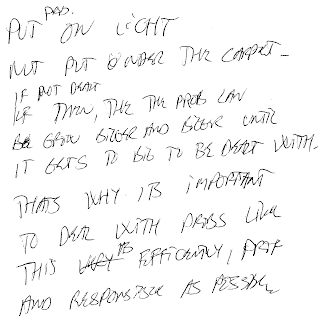 PROB.
PUT ON LIGHT
NOT PUT UNDER THE CARPET
IF NOT DEALT
THEN, THE THE PROB CAN
BE GROW BIGGER AND BIGGER UNTIL
IT GETS TO BIG TO BE DEALT WITH.
THATS WHY, IS IMPORTANT
TO DEAL WITH PROBS LIKE
THIS AS EFFICIENTLY,
AND RESPONSIBLE AS POSSIBLE